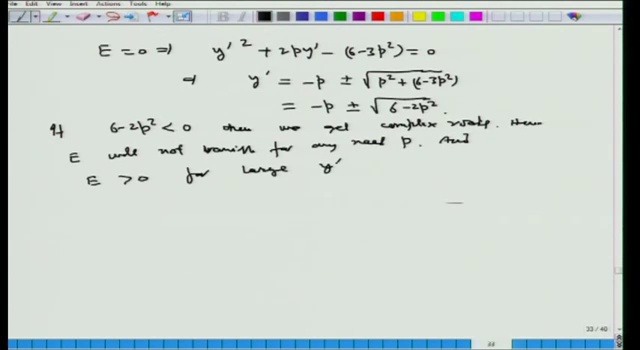 File Edit View Insert Actions Tools Help
E = 0 ⇒ y'² + 2py' - (6-3p²) = 0
⇒ y' = -p ± √p²+(6-3p²)
= -p ± √6-2p².
If 6-2p² < 0 then we get complex roots. Hence
E will not vanish for any real p. And
E > 0 for large y'
33 / 40
33